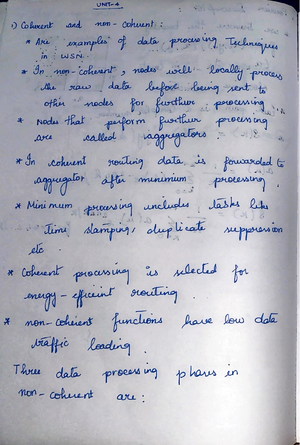 UNIT-4
1) Coherent and non-coherent:
* Are examples of data processing Techniques
in WSN.
* In non-coherent, nodes will locally process
the raw data before being sent to
other nodes for further processing
* Nodes that perform further processing
are called aggregators.
* In coherent routing data is forwarded to
aggregator after minimum processing
* Minimum processing includes tasks like
time stamping, duplicate suppression
etc.
* Coherent processing is selected for
energy-efficient routing.
* non-coherent functions have low data
traffic loading.
Three data processing phases in
non-coherent are: